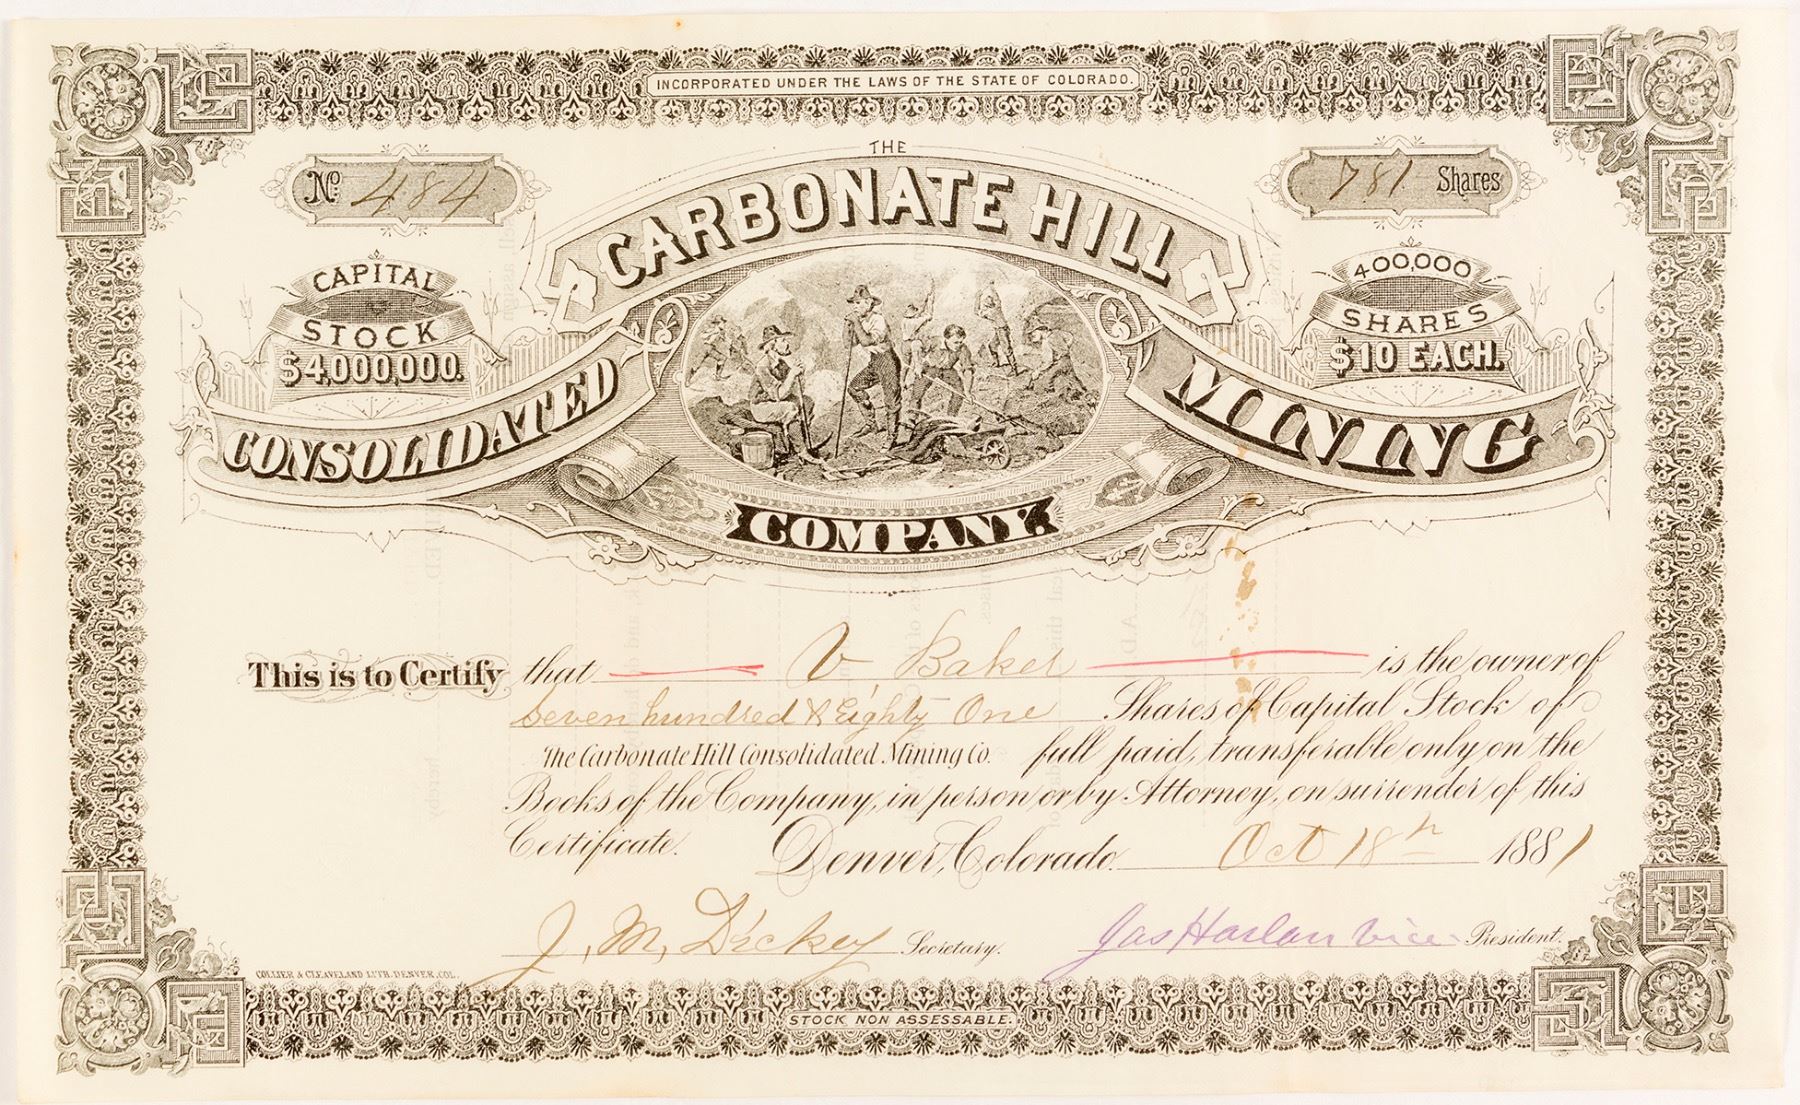 INCORPORATED UNDER THE LAWS OF THE STATE OF COLORADO.
No. 484
781 Shares
THE
CARBONATE HILL
CONSOLIDATED MINING
COMPANY.
CAPITAL
STOCK
$4,000,000.
400,000
SHARES
$10 EACH.
This is to Certify that V Baker is the owner of
Seven hundred & Eighty One Shares of Capital Stock of
The Carbonate Hill Consolidated Mining Co. full paid, transferable only on the
Books of the Company, in person or by Attorney, on surrender of this
Certificate. Denver, Colorado. Oct 18th 1881
J. M. Dickey Secretary. Jas Harlan Vice President.
COLLIER & CLEAVELAND LITH. DENVER, COL.
STOCK NON ASSESSABLE.